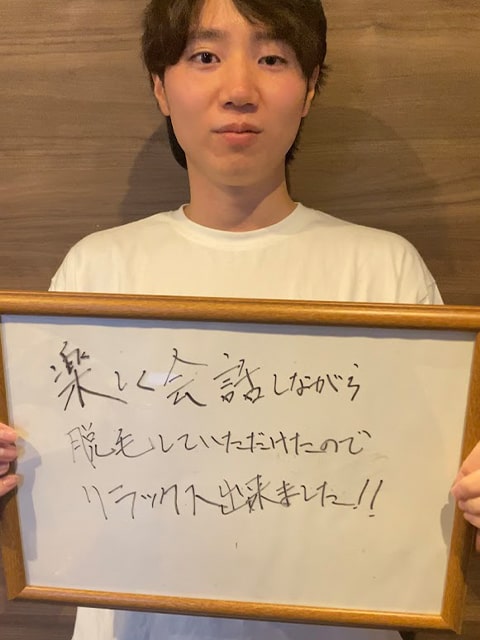 楽しく会話しながら
脱毛していただけたので
リラックス出来ました!!